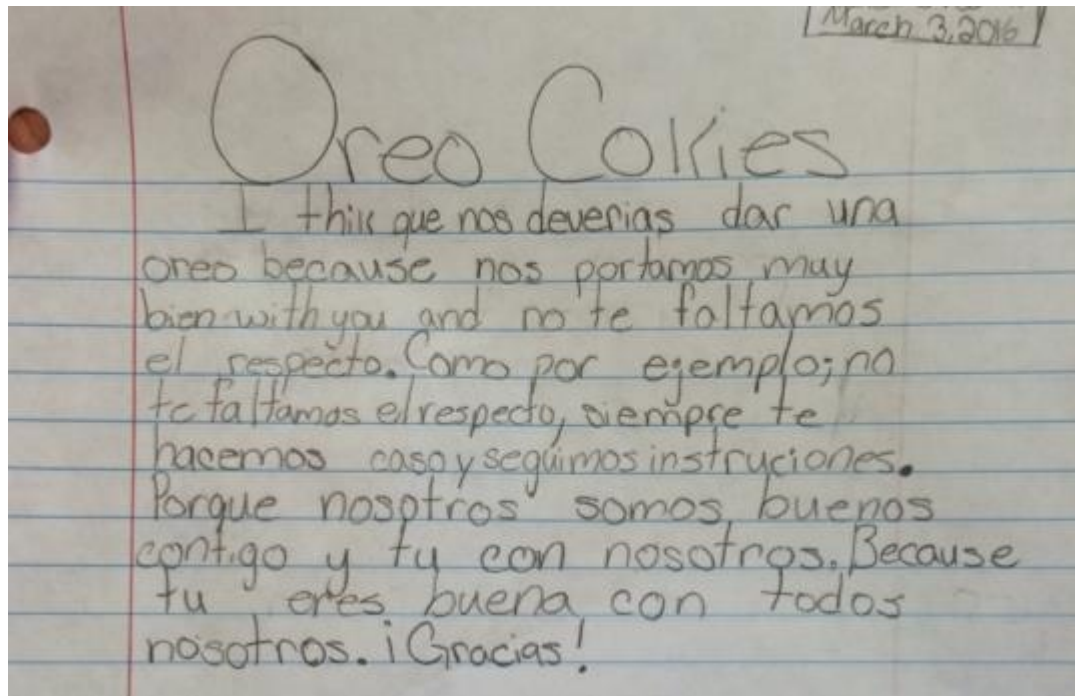 March 3, 2016
Oreo Cokies
I thik que nos deverias dar una
oreo because nos portamos muy
bien with you and no te faltamos
el respecto. Como por ejemplo; no
te faltamos el respecto, siempre te
hacemos caso y seguimos instruciones.
Porque nosotros somos buenos
contigo y tu con nosotros. Because
tu eres buena con todos
nosotros. ¡Gracias!